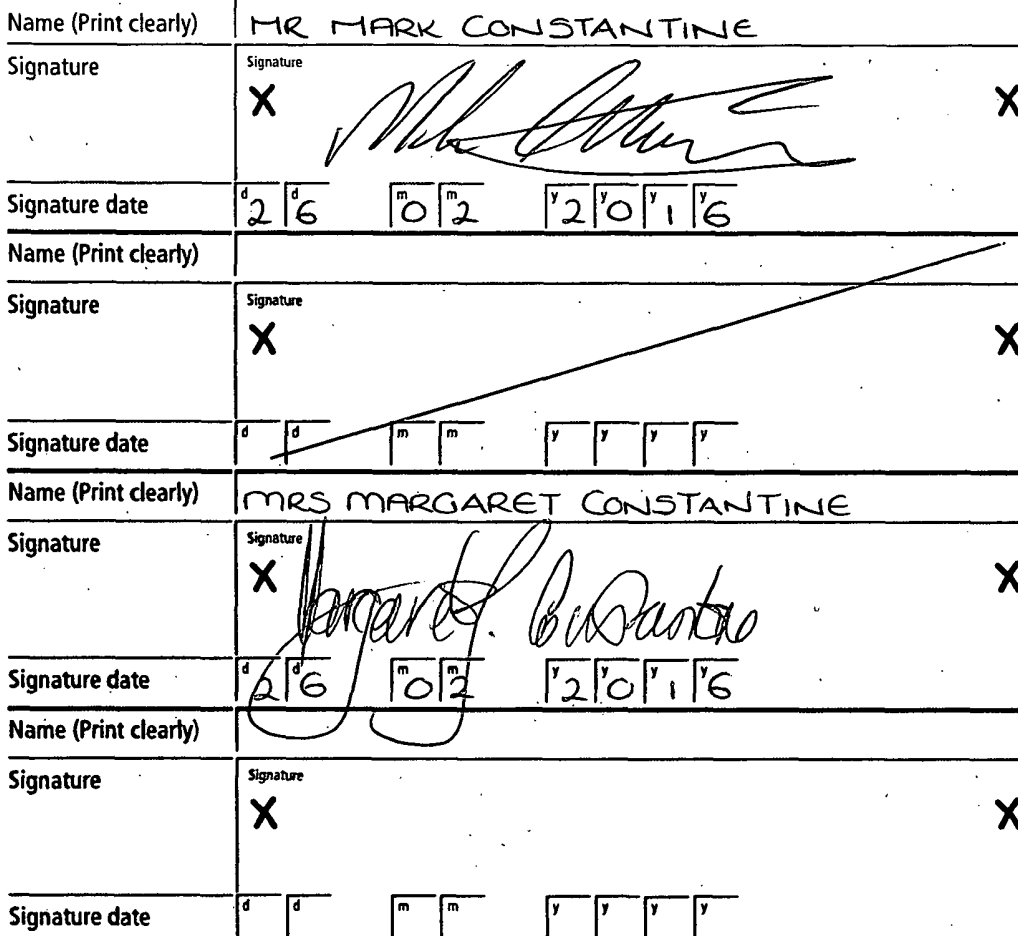 Name (Print clearly) MR MARK CONSTANTINE
Signature Signature
X X
Signature date d2 d6 m0 m2 y2 y0 y1 y6
Name (Print clearly)
Signature Signature
X X
Signature date d d m m y y y y
Name (Print clearly) MRS MARGARET CONSTANTINE
Signature Signature
X Margaret J. Constantine X
Signature date d2 d6 m0 m2 y2 y0 y1 y6
Name (Print clearly)
Signature Signature
X X
Signature date d d m m y y y y